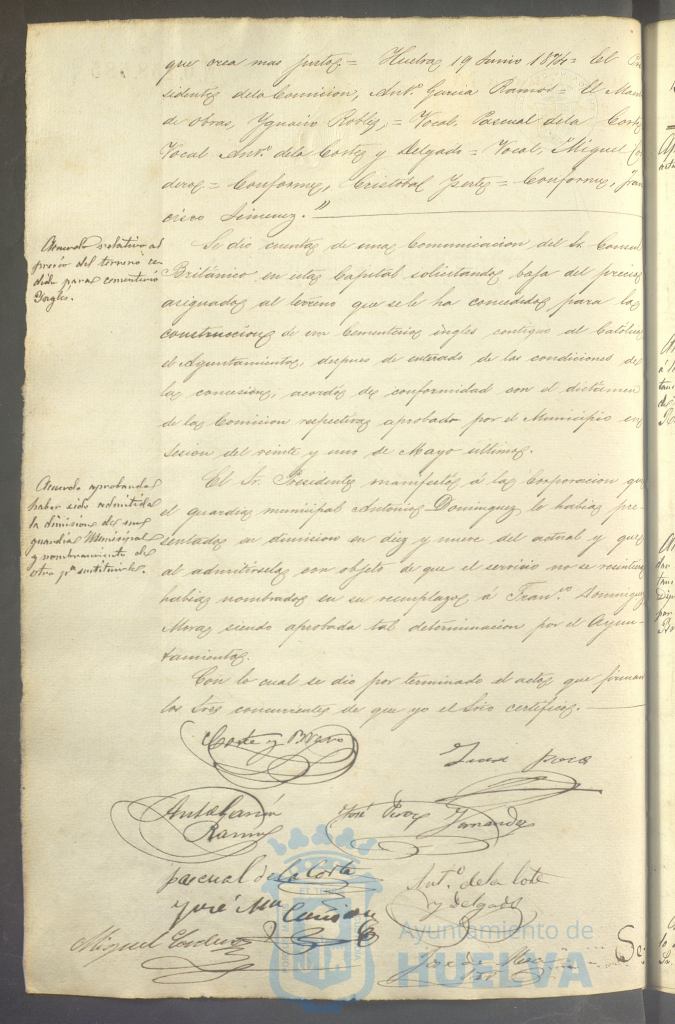 que crea mas justo = Huelva 19 Junio 1874 = El Pre
sidente de la Comision, Ant.º Garcia Ramos = El Maestro
de obras, Ygnacio Robles, = Vocal, Pascual de la Corte
Vocal Ant.º de la Corte y Delgado = Vocal, Miguel Cor
dero = Conforme, Cristobal = Conforme, Fran
cisco Jimenez."
Acuerdo relativo al
precio del terreno ce
dido para cementerio
Yngles.
Se dio cuenta de una Comunicacion del Sr. Consul
Británico en esta Capital solicitando baja del precio
asignado al terreno que se le ha concedido para la
construccion de un Cementerio ingles contiguo al Católico
el Ayuntamiento, despues de enterado de las condiciones de
la concesion, acordó de conformidad con el dictámen
de la Comision respectiva aprobado por el Municipio en
Sesion del veinte y uno de Mayo ultimo.
Acuerdo aprobando
haber sido admitida
la dimision de un
guardia Municipal
y nombramiento de
otro p.ª sustituirle.
El Sr. Presidente manifestó á la Corporacion que
el guardia municipal Antonio Dominguez le habia pre
sentado su dimision en diez y nueve del actual y que
al admitirsela con objeto de que el servicio no se resintiera
habia nombrado en su reemplazo á Fran.co Dominguez
Mora siendo aprobada tal determinacion por el Ayun
tamiento.
Con lo cual se dio por terminado el acto que firman
los Sres concurrentes de que yo el Srio certifico.
Corte y Bravo
Ant.º Garcia
Ramos
José Perez Fernandez
Pascual de la Corte
Ant.º de la Corte
y Delgado
José Mª
Miguel Cordero
Ayuntamiento de
HUELVA